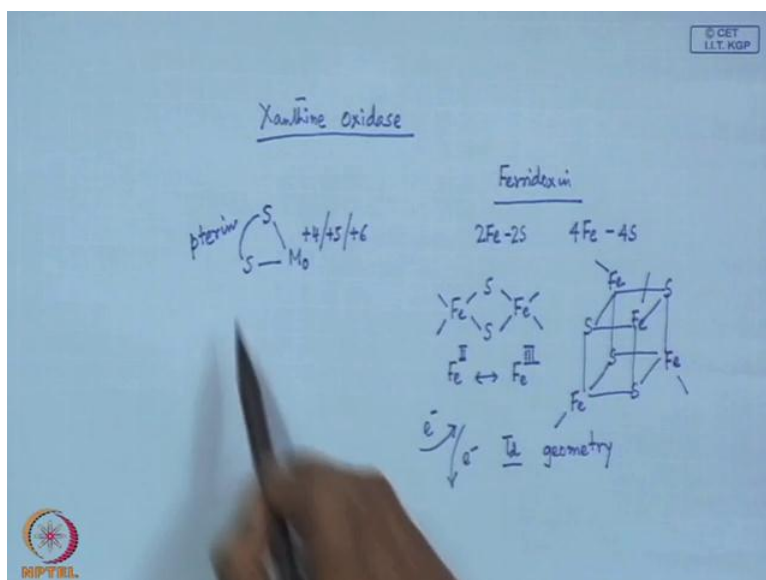 © CET
I.I.T. KGP
Xanthine oxidase
Ferridoxin
pterin S S Mo +4/+5/+6
2Fe-2S 4Fe-4S
S
Fe Fe
S
Fe S
S Fe
S Fe
Fe S
Fe II ↔ Fe III
e⁻ e⁻ Td geometry
NPTEL